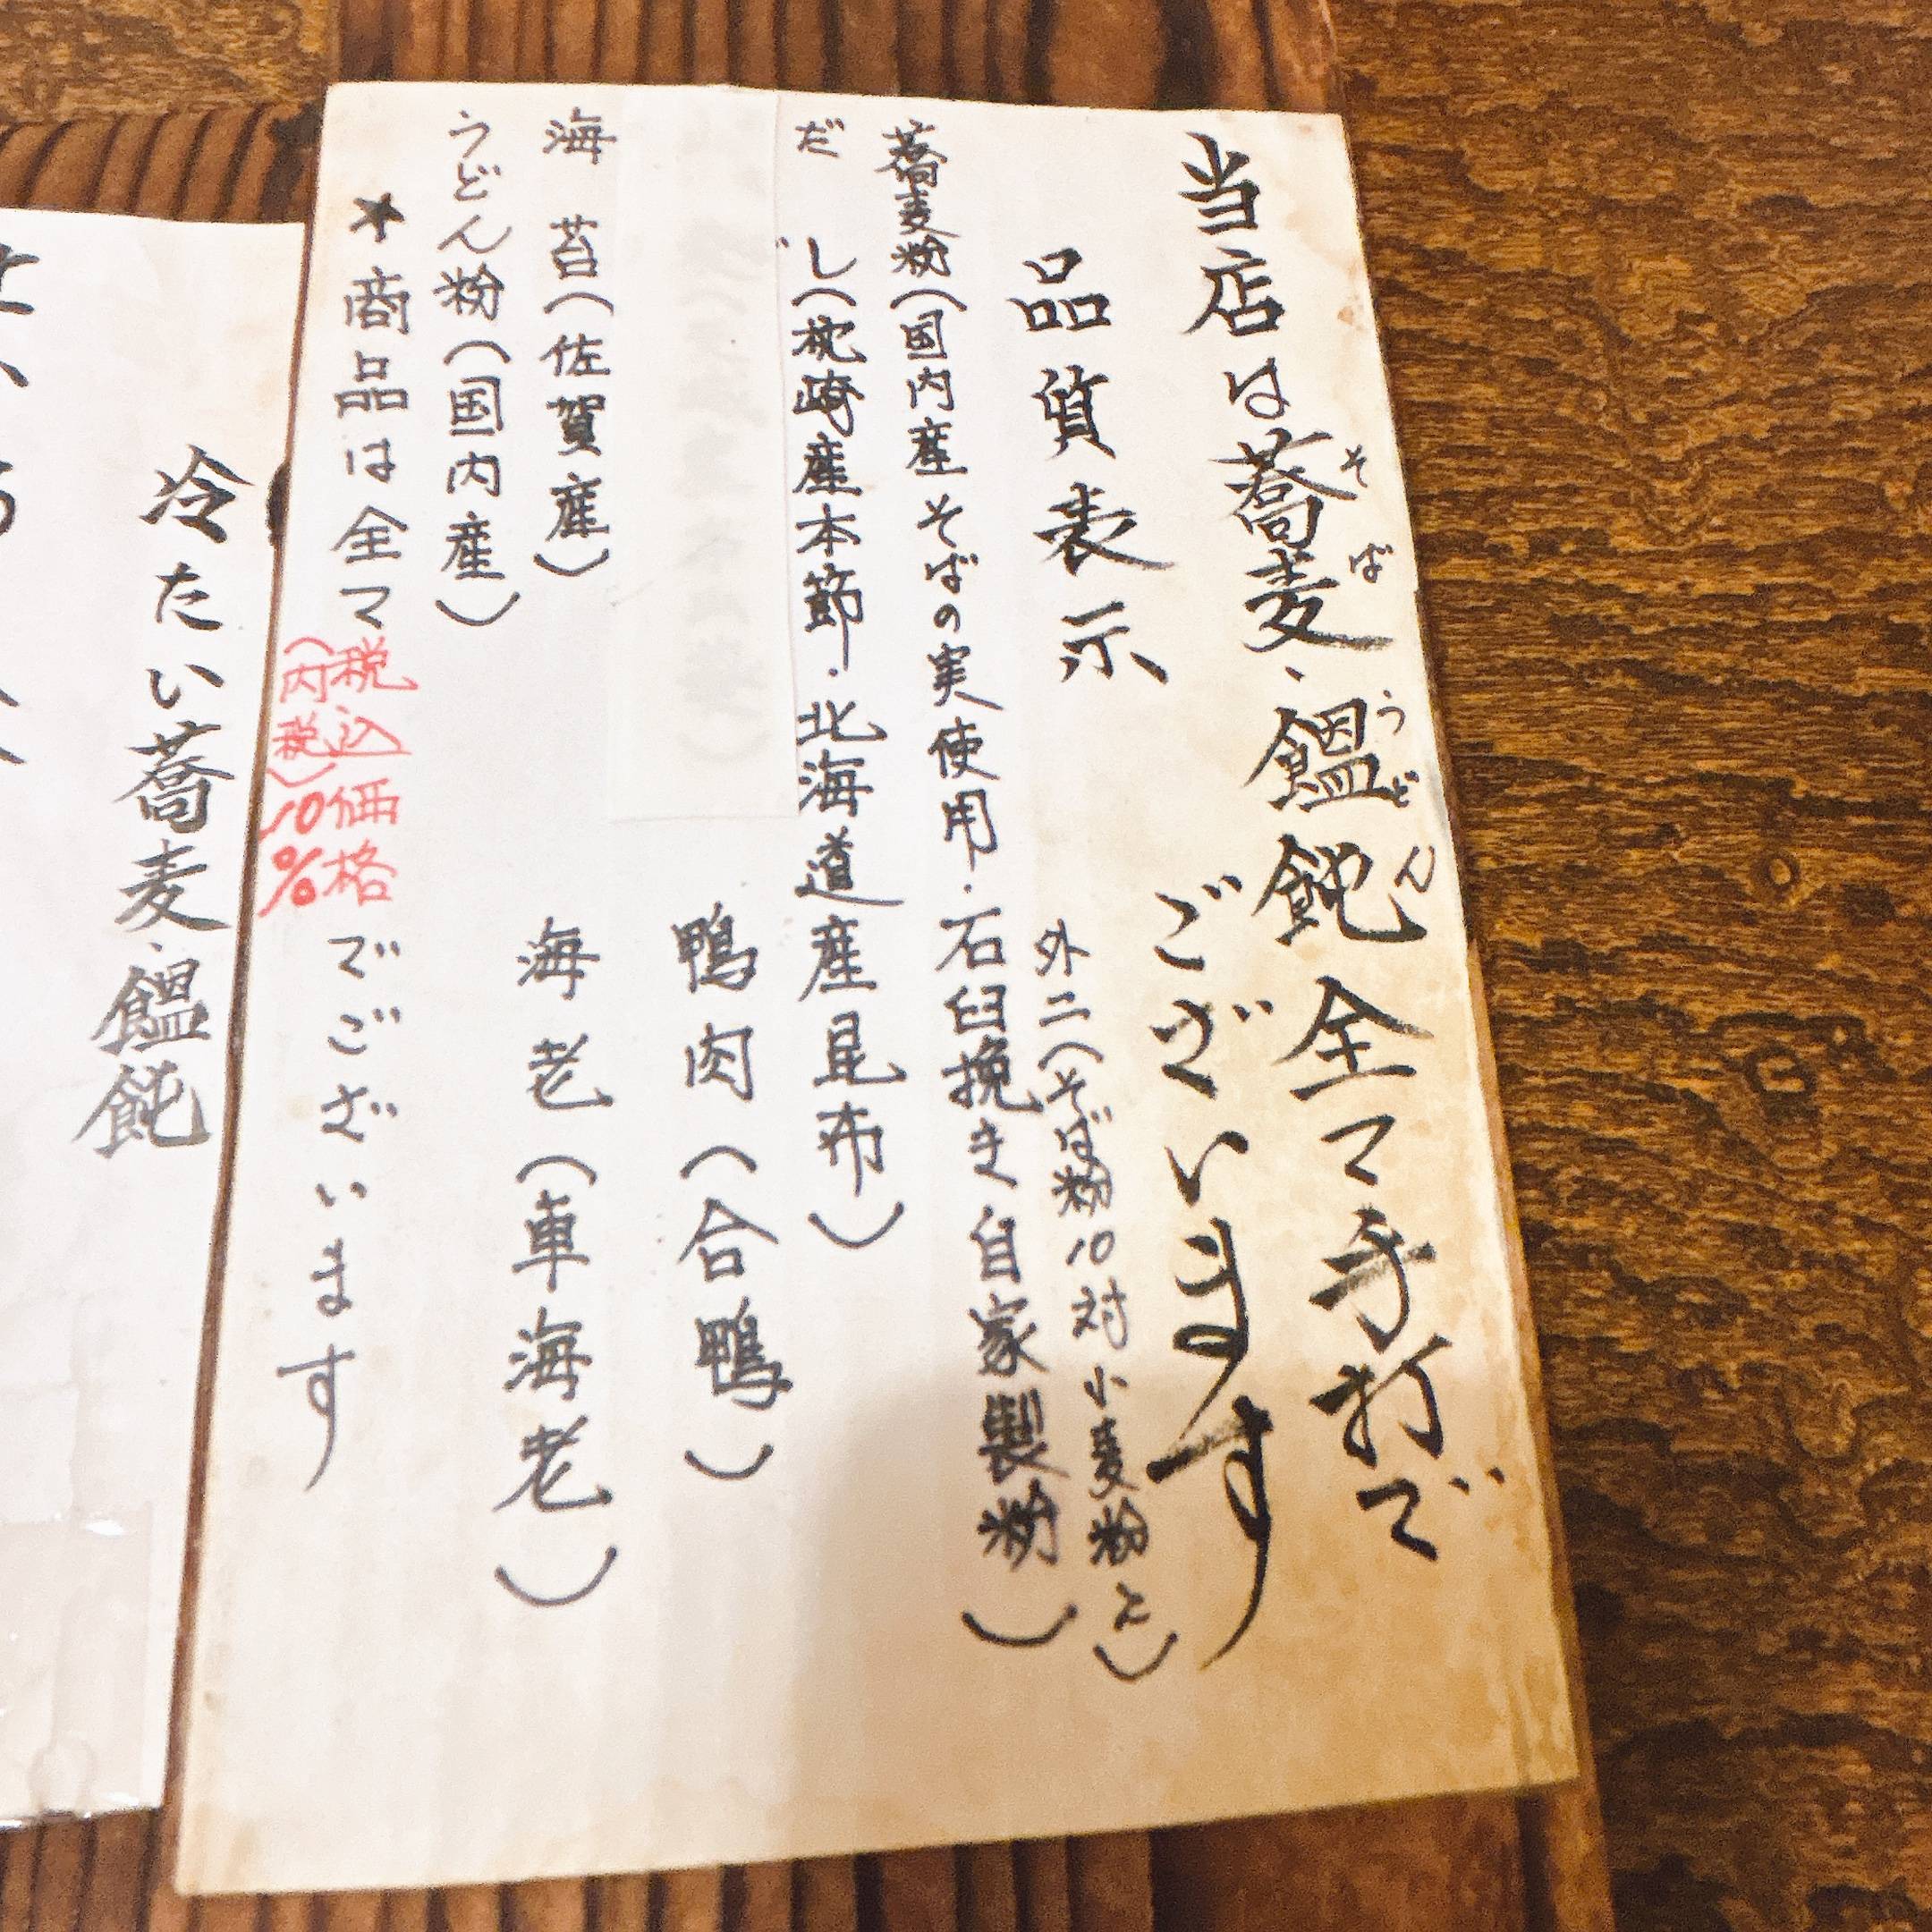 当店は蕎麦・饂飩全て手打で
そば
うどん
ございます
品質表示
外二(そば粉10対小麦粉2)
蕎麦粉(国内産そばの実使用・石臼挽き自家製粉)
だし(枕崎産本節・北海道産昆布)
鴨肉(合鴨)
海苔(佐賀産)
海老(車海老)
うどん粉(国内産)
★商品は全て税込価格でございます
(内税)10%
冷たい蕎麦・饂飩